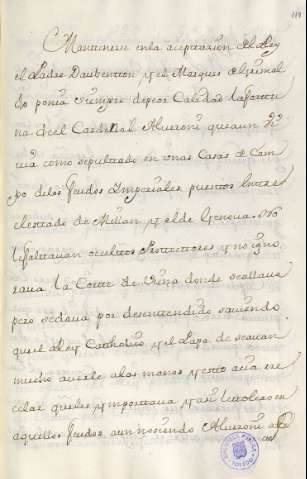 119
Mantenerse en la aceptazion del Rey
el Padre Daubenton, y el Marques de Grimal
do ponia siempre de peor Calidad la fortu
na del Cardenal Alveroni que aun vi
via como sepultado en unas Casas de Cam
po de los feudos Imperiales puestos entre
el estado de Milan y el de Genova. No
le faltavan ocultos Protectores y no igno
rava la Corte de Viena donde se allava
pero se dava por desentendida saviendo
que el Rey Catholico y el Papa deseavan
mucho averle a las manos y esto
celar que les ymportava y asi
aquellos feudos aun no siendo Alveroni